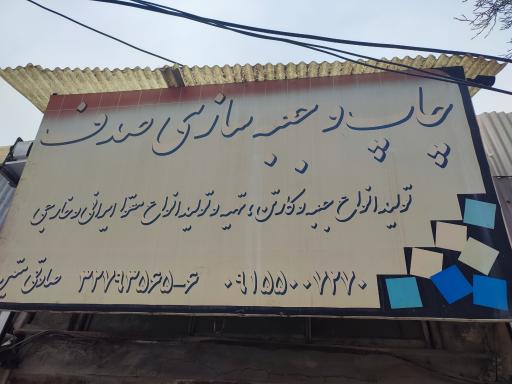 چاپ و جعبه سازی صدف
تولید انواع جعبه و کارتن، تهیه و تولید انواع مقوا ایرانی و خارجی
۰۹۱۵۵۰۰۷۲۷۰ ۳۲۷۹۳۵۶۵-۶ صادقی